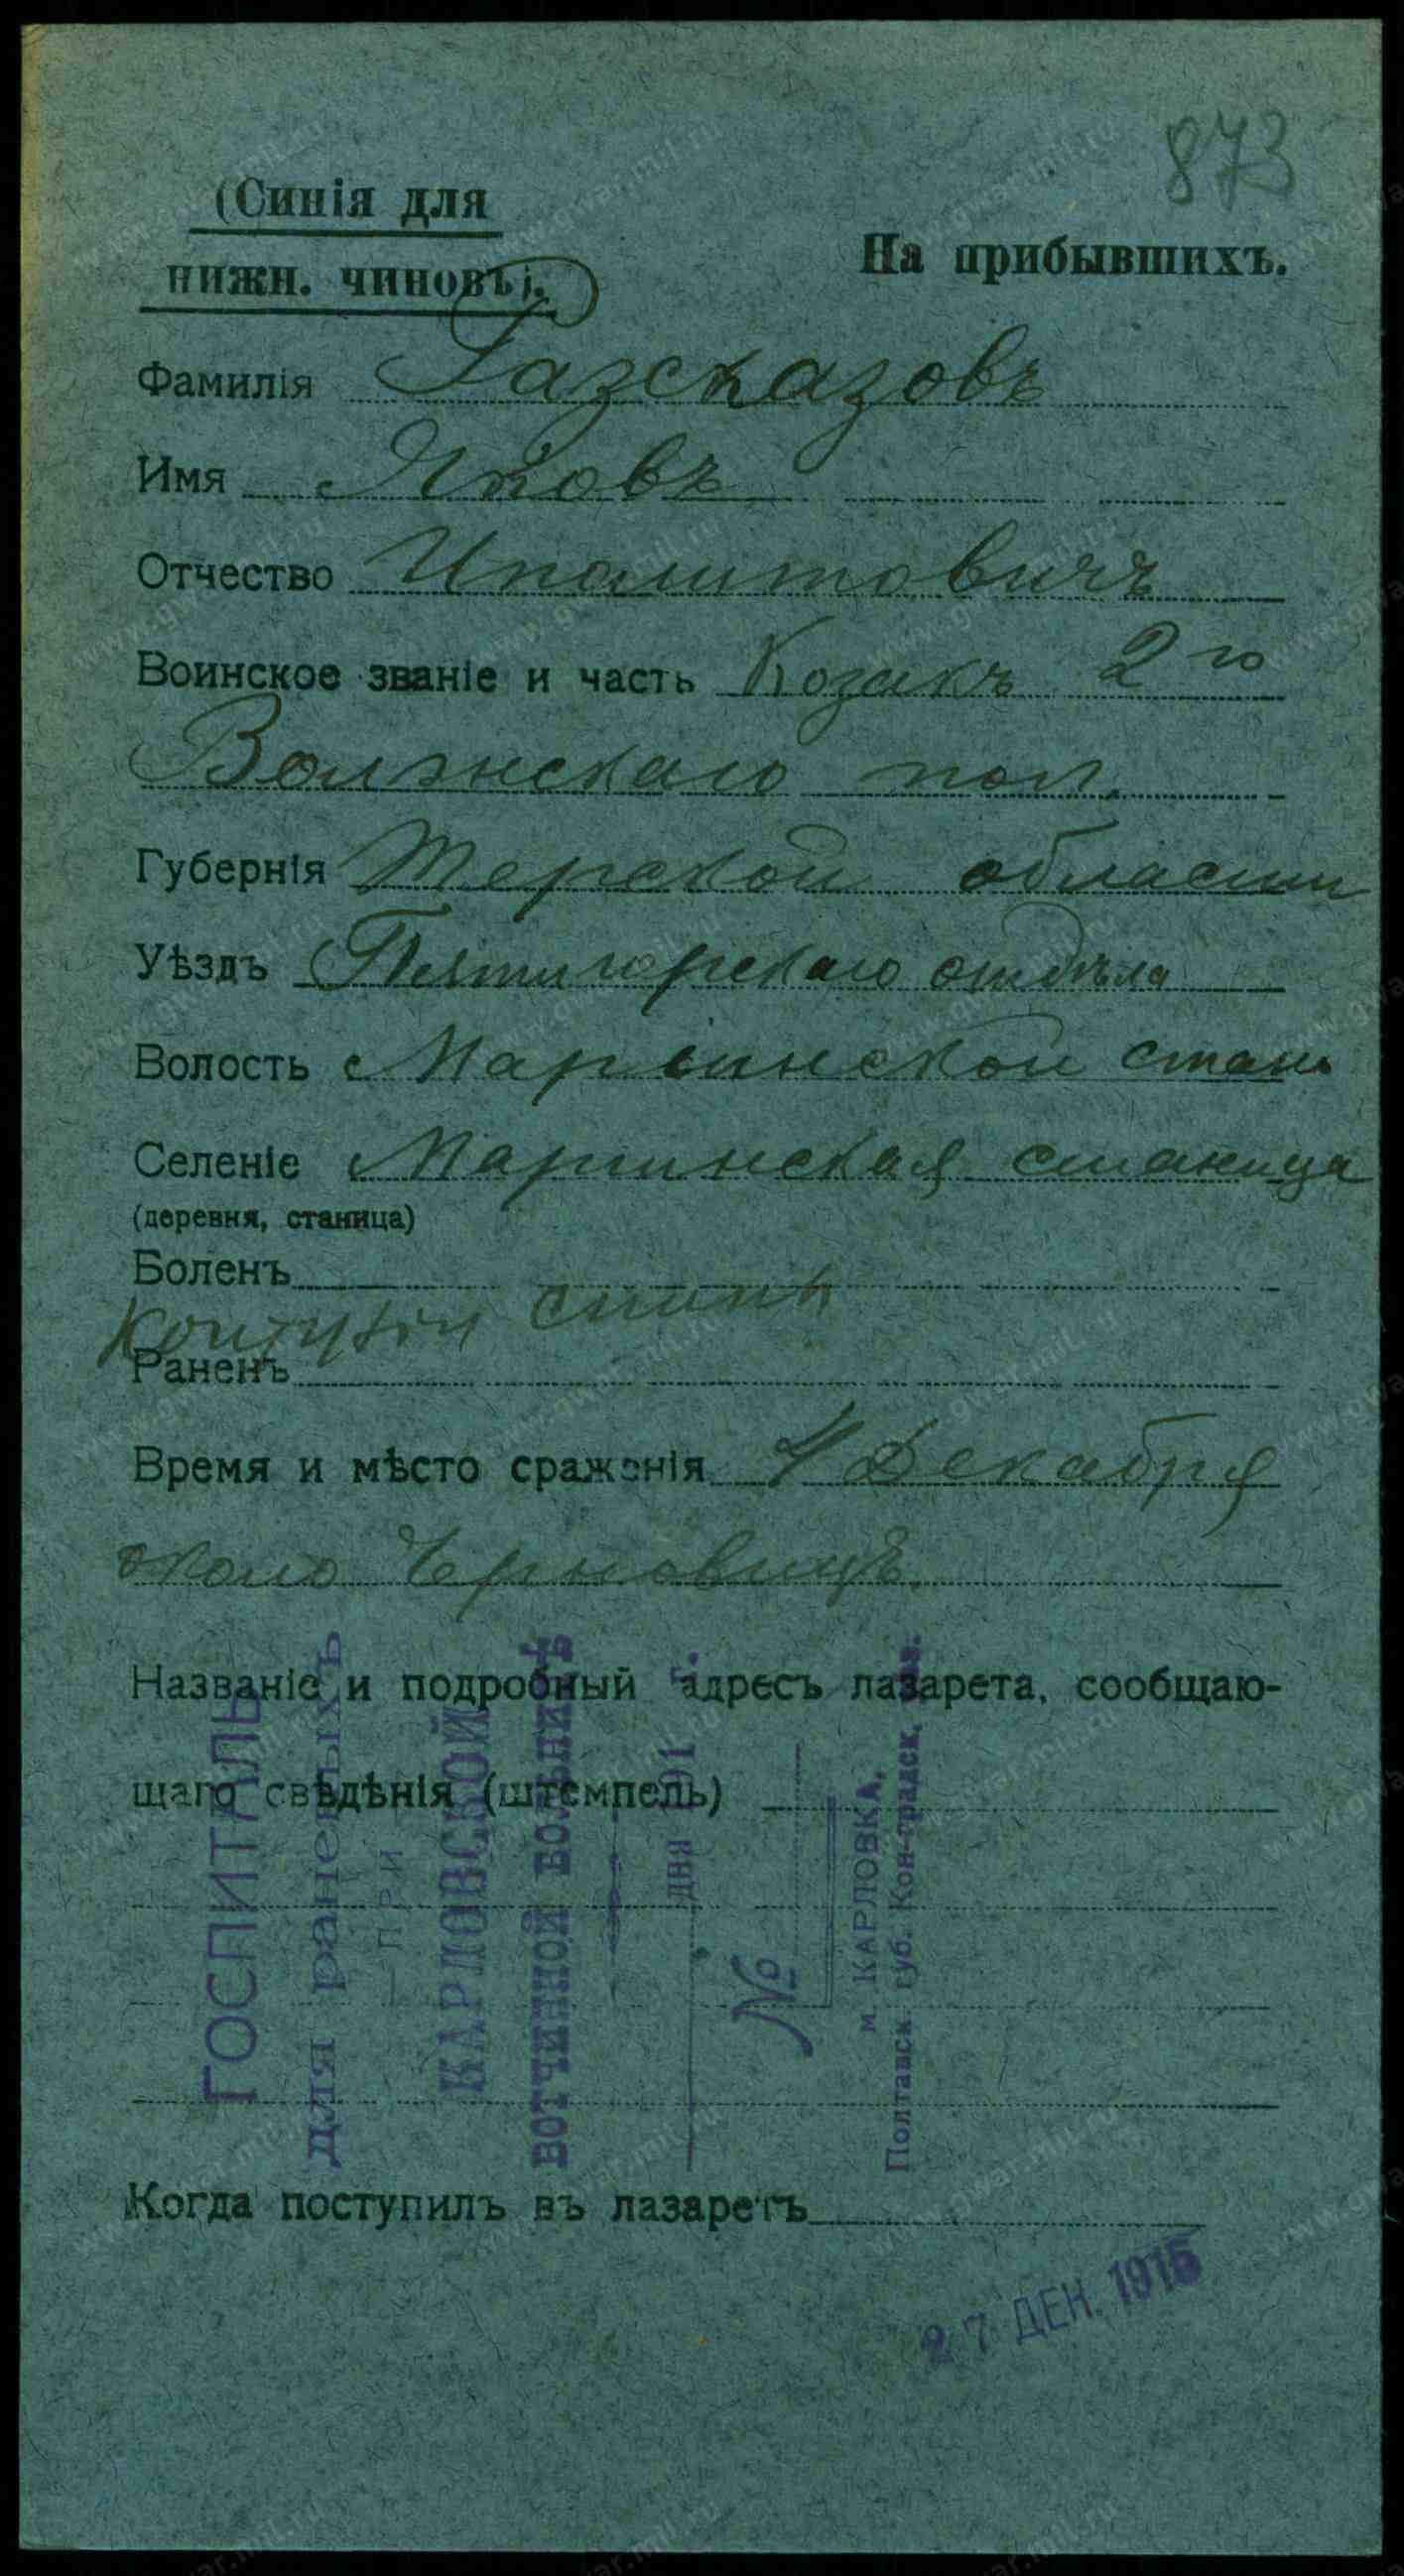 873
(Синія для
нижн. чиновъ).
На прибывшихъ.
Фамилія Разсказовъ
Имя Яковъ
Отчество Иполитовичъ
Воинское званіе и часть Козакъ 2го
Волжскаго пол.
Губернія Терской области
Уѣздъ Пятигорскаго отдѣла
Волость Марьинской стан.
Селеніе Марьинская станица
(деревня, станица)
Боленъ
Контузія спины
Раненъ
Время и мѣсто сраженія 4 Декабря
около Черновицъ.
Названіе и подробный адресъ лазарета, сообщаю-
щаго свѣдѣнія (штемпель)
ГОСПИТАЛЬ
для раненыхъ
— ПРИ
КАРЛОВСКОЙ
ВОТЧИННОЙ БОЛЬНИЦѢ
дня 191 г.
№
м. КАРЛОВКА,
Полтавск. губ. Кон-градск. уѣз.
Когда поступилъ въ лазаретъ
27 ДЕН. 1915
www.gwar.mil.ru